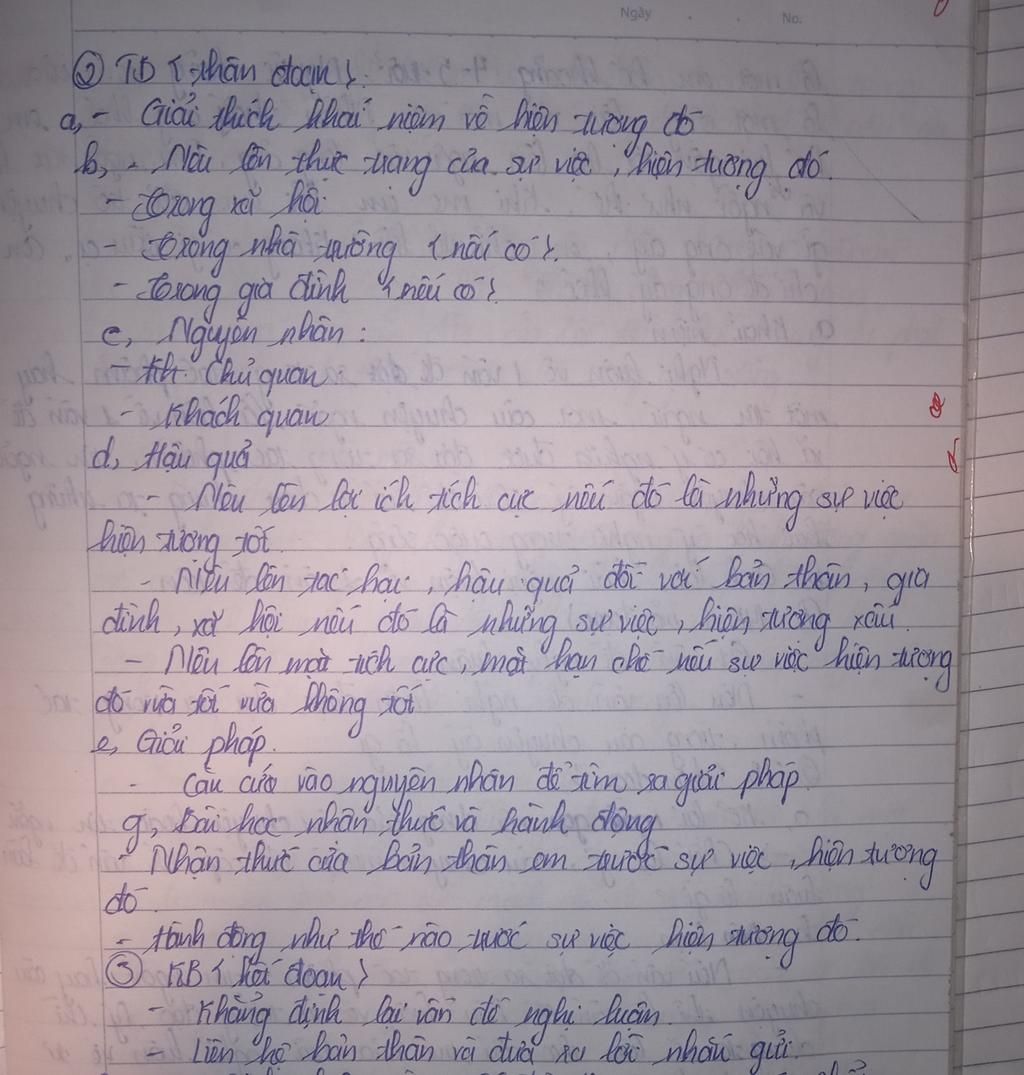 Ngày . . No.
② TB { thân đoạn }.
a, - Giải thích khái niệm về hiện tượng đó
b, - Nêu lên thực trạng của sự việc, hiện tượng đó.
- trong xã hội
- trong nhà trường { nếu có }.
- trong gia đình { nếu có }.
c, Nguyên nhân :
- Chủ quan
- Khách quan
d, Hậu quả
- Nêu lên lợi ích tích cực nếu đó là những sự việc
hiện tượng tốt.
- Nêu lên tác hại, hậu quả đối với bản thân, gia
đình, xã hội nếu đó là những sự việc, hiện tượng xấu.
- Nêu lên mặt tích cực, mặt hạn chế nếu sự việc hiện tượng
đó vừa tốt vừa không tốt
e, Giải pháp.
- Căn cứ vào nguyên nhân để tìm ra giải pháp
g, Bài học nhận thức và hành động
- Nhận thức của bản thân em trước sự việc, hiện tượng
đó.
- Hành động như thế nào trước sự việc hiện tượng đó.
③ KB { kết đoạn }
- Khẳng định lại vấn đề nghị luận.
- Liên hệ bản thân và đưa ra lời nhắn gửi.